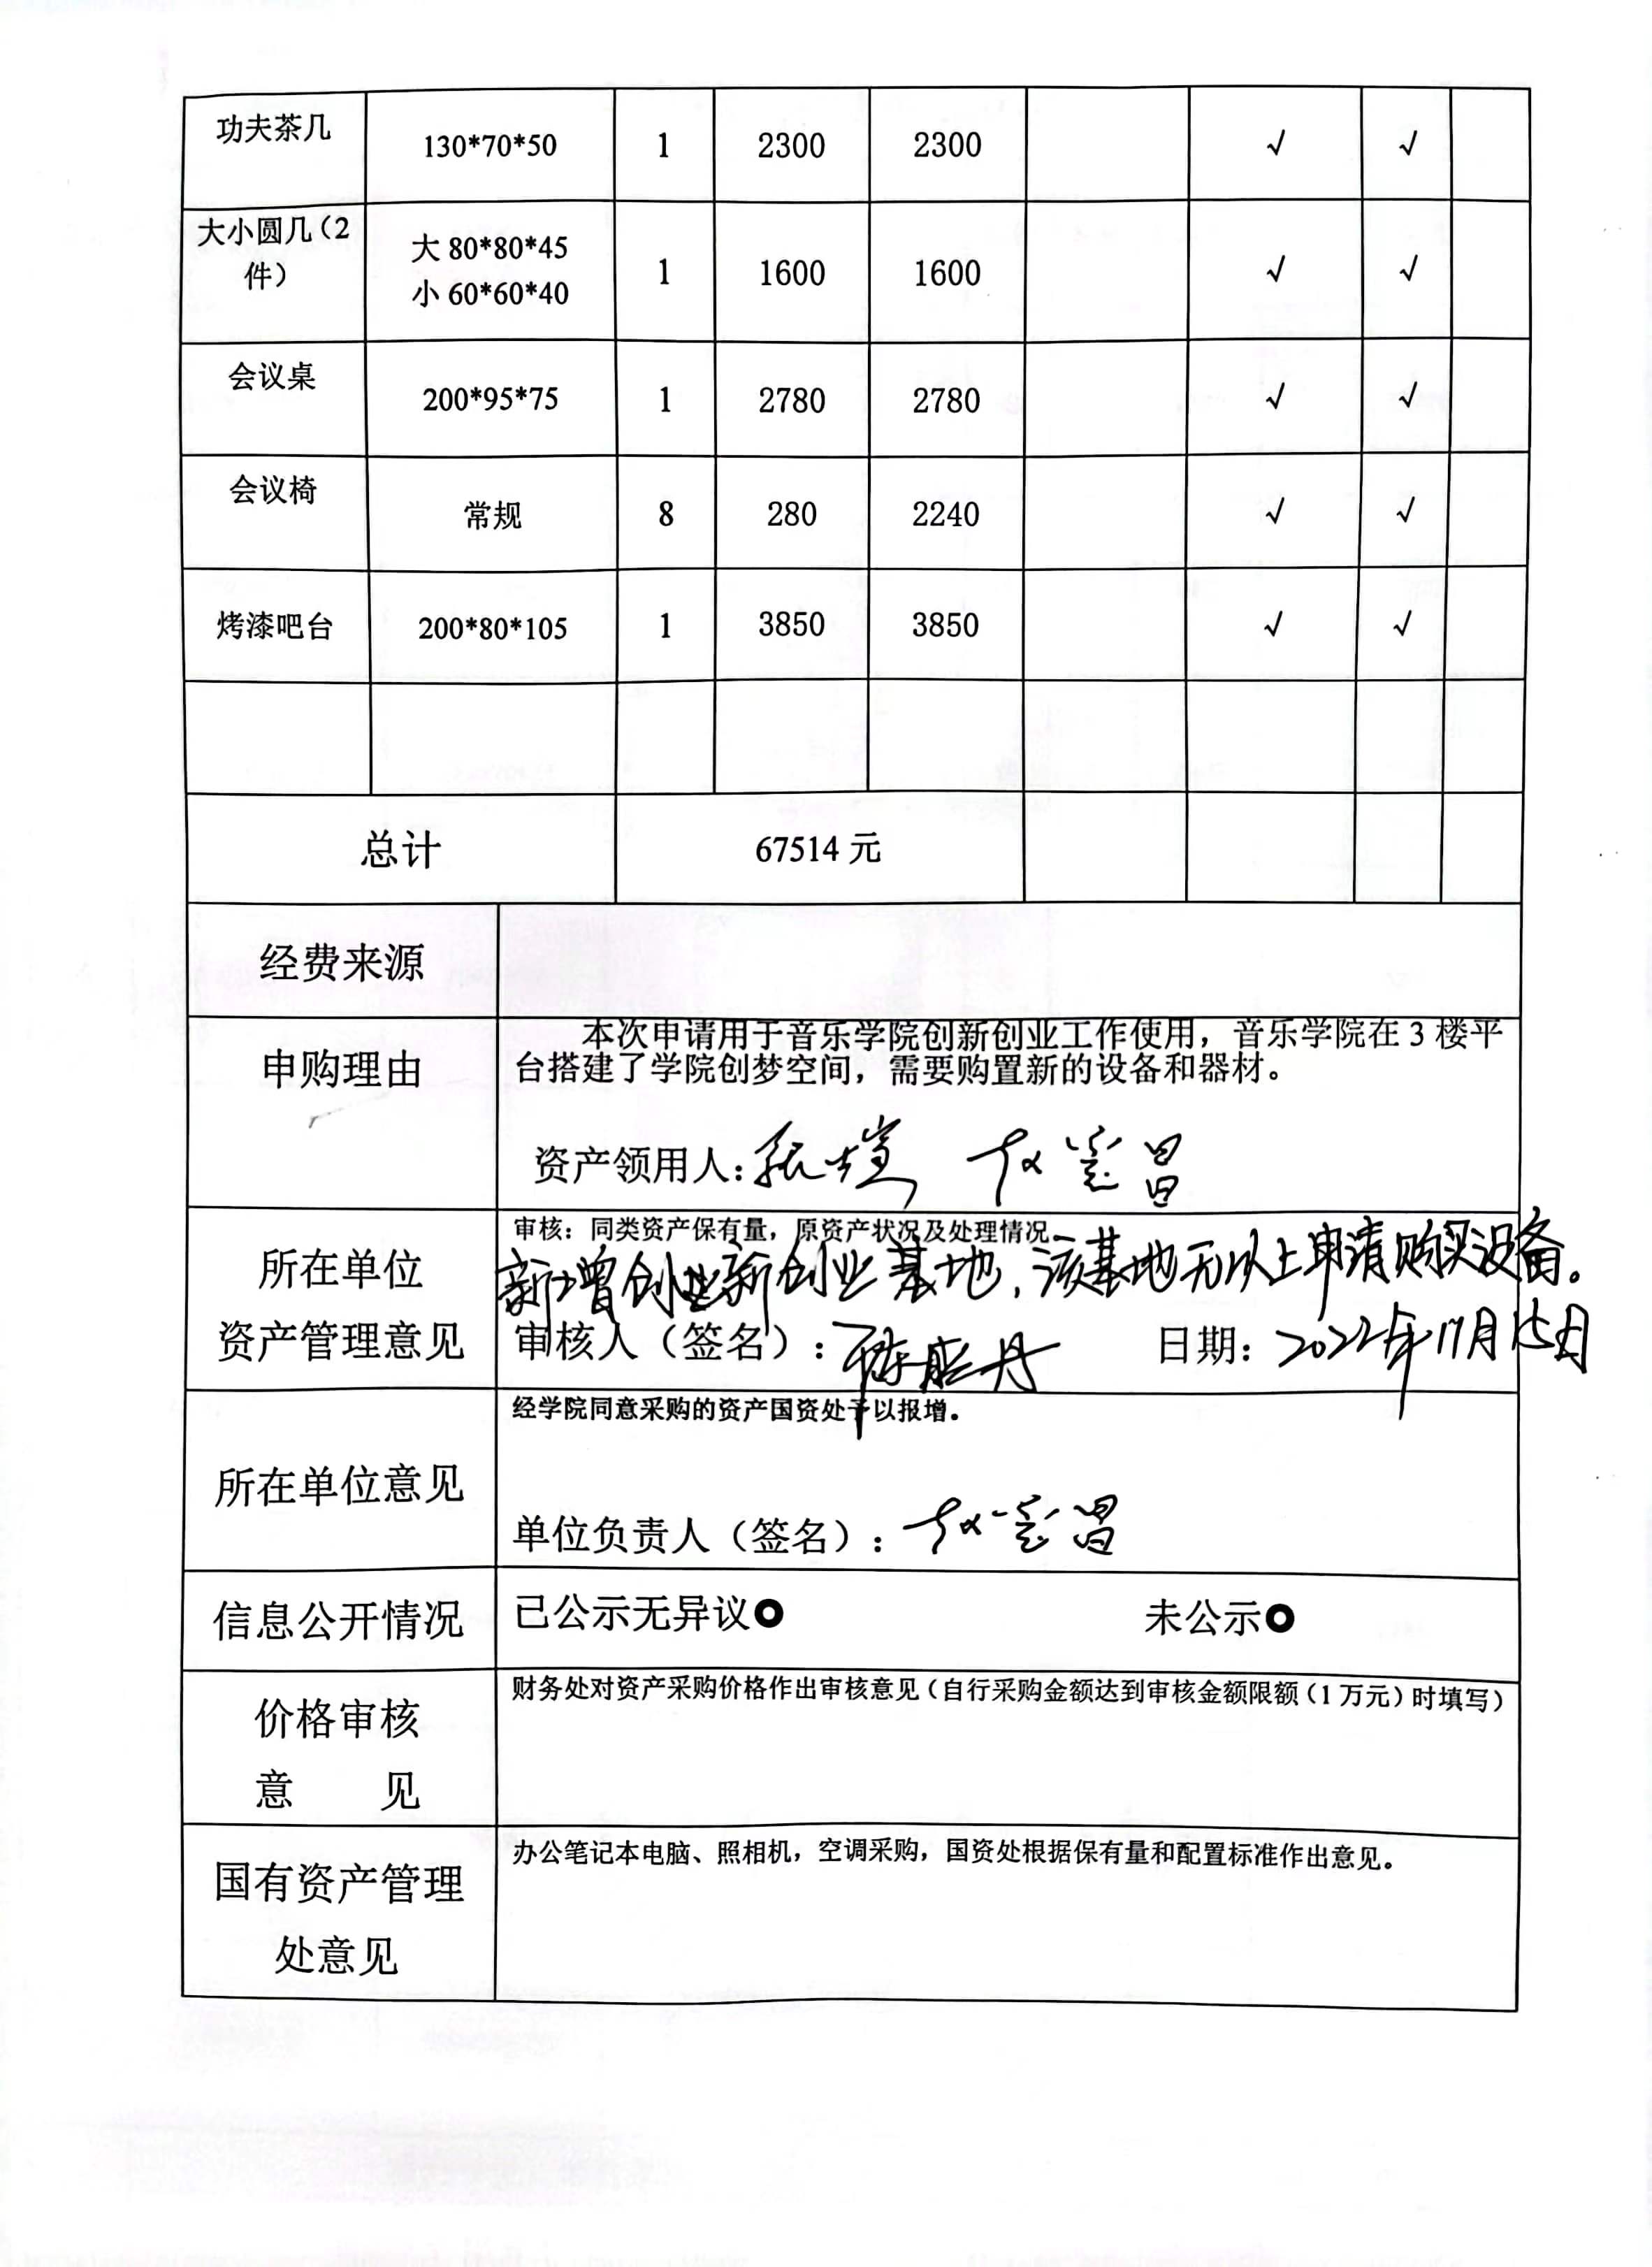 功夫茶几 130*70*50 1 2300 2300 √ √
大小圆几(2
件)
大 80*80*45
小 60*60*40
1 1600 1600 √ √
会议桌 200*95*75 1 2780 2780 √ √
会议椅 常规 8 280 2240 √ √
烤漆吧台 200*80*105 1 3850 3850 √ √
总计 67514 元
经费来源
申购理由
本次申请用于音乐学院创新创业工作使用，音乐学院在 3 楼平
台搭建了学院创梦空间，需要购置新的设备和器材。
资产领用人:
所在单位
资产管理意见
审核：同类资产保有量，原资产状况及处理情况
新增创业新创业基地，该基地无以上申请购买设备。
审核人（签名）: 日期: 2022年11月15日
所在单位意见
经学院同意采购的资产国资处予以报增。
单位负责人（签名）:
信息公开情况 已公示无异议 未公示
价格审核
意 见
财务处对资产采购价格作出审核意见(自行采购金额达到审核金额限额(1 万元)时填写)
国有资产管理
处意见
办公笔记本电脑、照相机，空调采购，国资处根据保有量和配置标准作出意见。